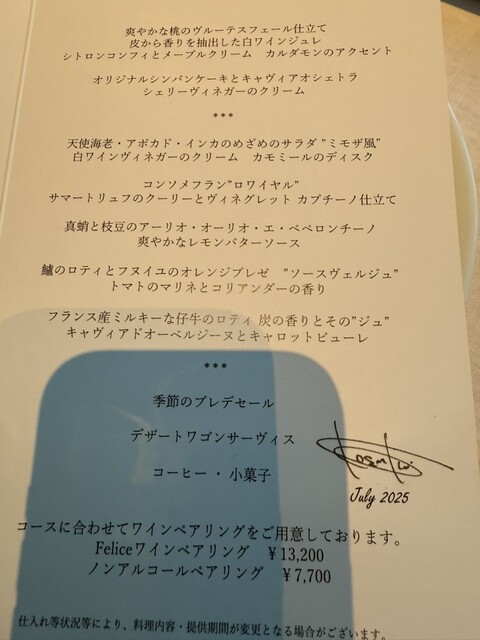 爽やかな桃のヴルーテスフェール仕立て
皮から香りを抽出した白ワインジュレ
シトロンコンフィとメープルクリーム　カルダモンのアクセント
オリジナルシンパンケーキとキャヴィアオシェトラ
シェリーヴィネガーのクリーム
***
天使海老・アボカド・インカのめざめのサラダ "ミモザ風"
白ワインヴィネガーのクリーム　カモミールのディスク
コンソメフラン"ロワイヤル"
サマートリュフのクーリーとヴィネグレット カプチーノ仕立て
真蛸と枝豆のアーリオ・オーリオ・エ・ペペロンチーノ
爽やかなレモンバターソース
鱸のロティとフヌイユのオレンジブレゼ　"ソースヴェルジュ"
トマトのマリネとコリアンダーの香り
フランス産ミルキーな仔牛のロティ 炭の香りとその"ジュ"
キャヴィアドオーベルジーヌとキャロットピューレ
***
季節のプレデセール
デザートワゴンサーヴィス
コーヒー ・ 小菓子
July 2025
コースに合わせてワインペアリングをご用意しております。
Feliceワインペアリング　￥13,200
ノンアルコールペアリング　￥7,700
仕入れ等状況等により、料理内容・提供期間が変更となる場合がございます。